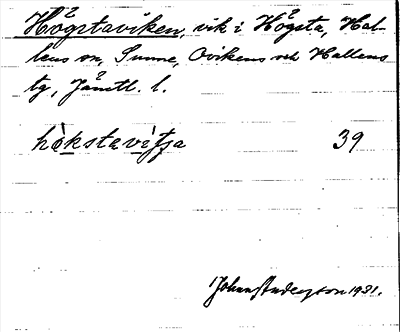 Högstaviken, vik i Högsta, Hal-
lens sn, Sunne, Ovikens och Hallens
tg, Jämtl. l.
hòkstavìʃa 39
Johan Anderzson 1931.